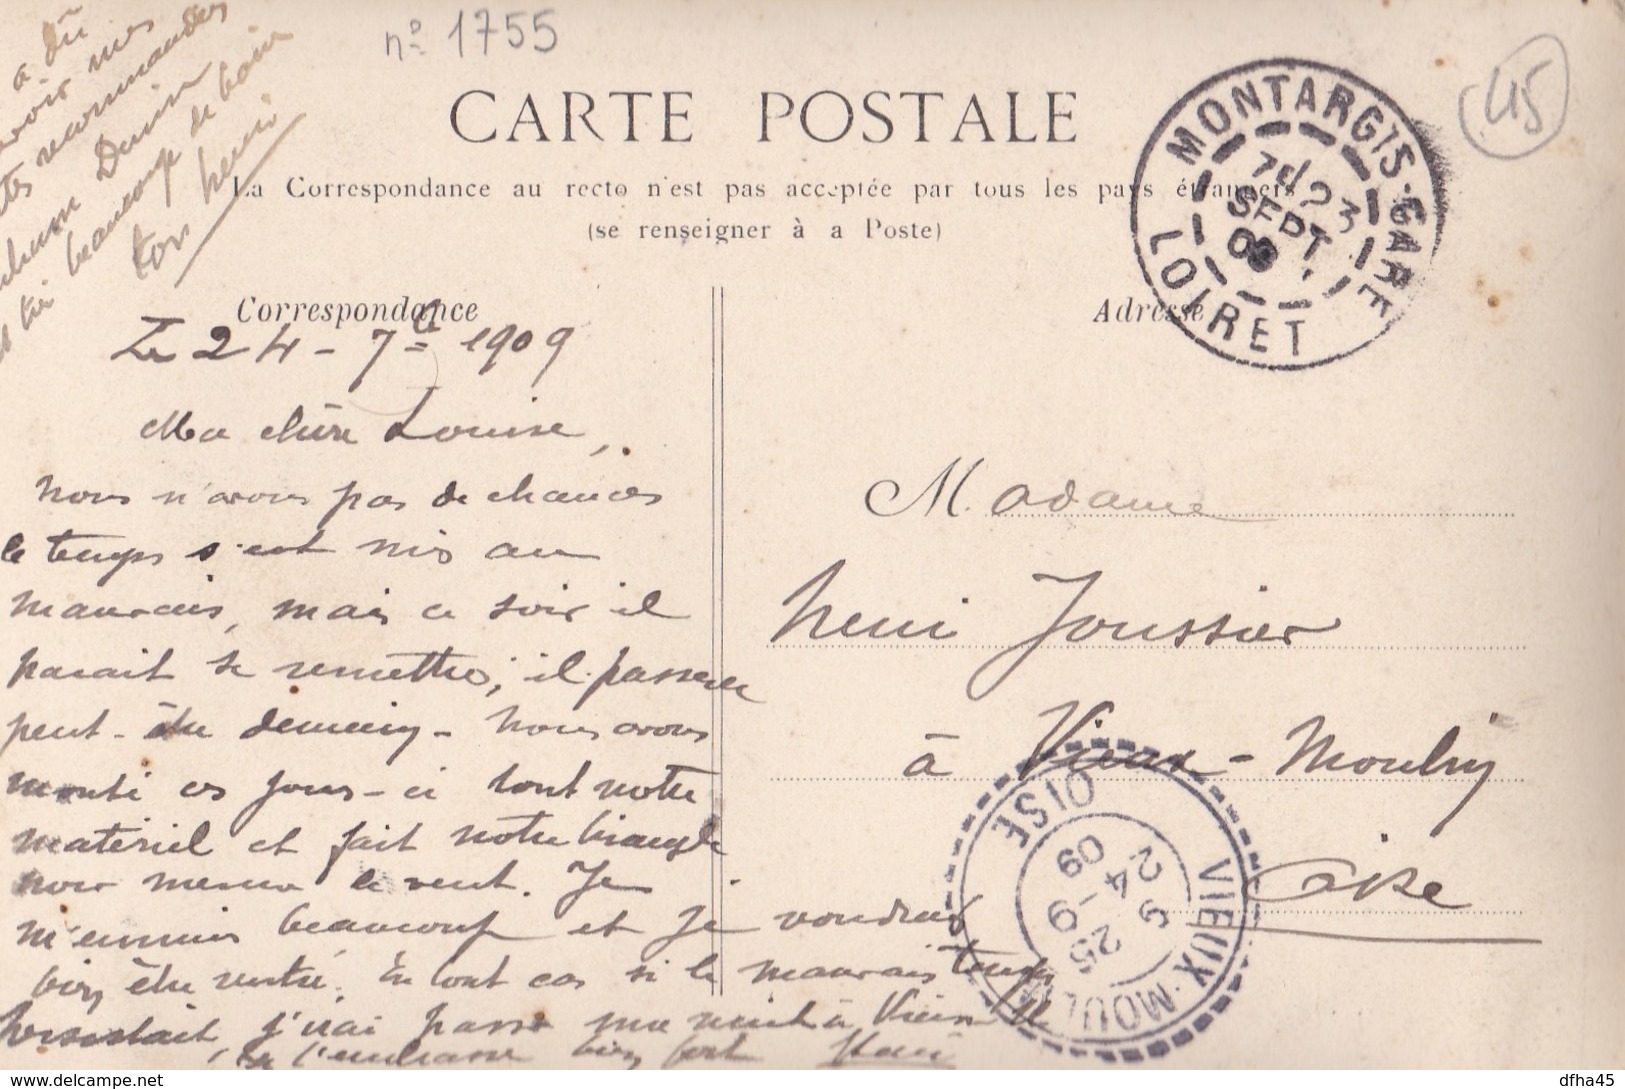 n° 1755
45
CARTE POSTALE
La Correspondance au recto n'est pas acceptée par tous les pays étrangers
(se renseigner à a Poste)
MONTARGIS-GARE
7 23
SEPT.
09
LOIRET
a dû
mes
recommandées
Demin
beaucoup de
ton Henri
Correspondance
Adresse
Le 24-7bre 1909
Ma chère Louise,
Nous n'avons pas de chances
le temps s'est mis au
mauvais, mais ce soir il
parait se remettre; il passera
peut-être demain - Nous avons
monté ces jours-ci tout notre
matériel et fait notre triangle
pour mesurer le vent. Je
m'ennuie beaucoup et je voudrais
bien être rentré. En tout cas si le mauvais temps
persistait, j'irai passer ma nuit à Vieux M
Je t'embrasse bien fort Henri
Madame
Henri Joussier
à Vieux-Moulin
Oise
VIEUX-MOULIN
OISE
24-9
09